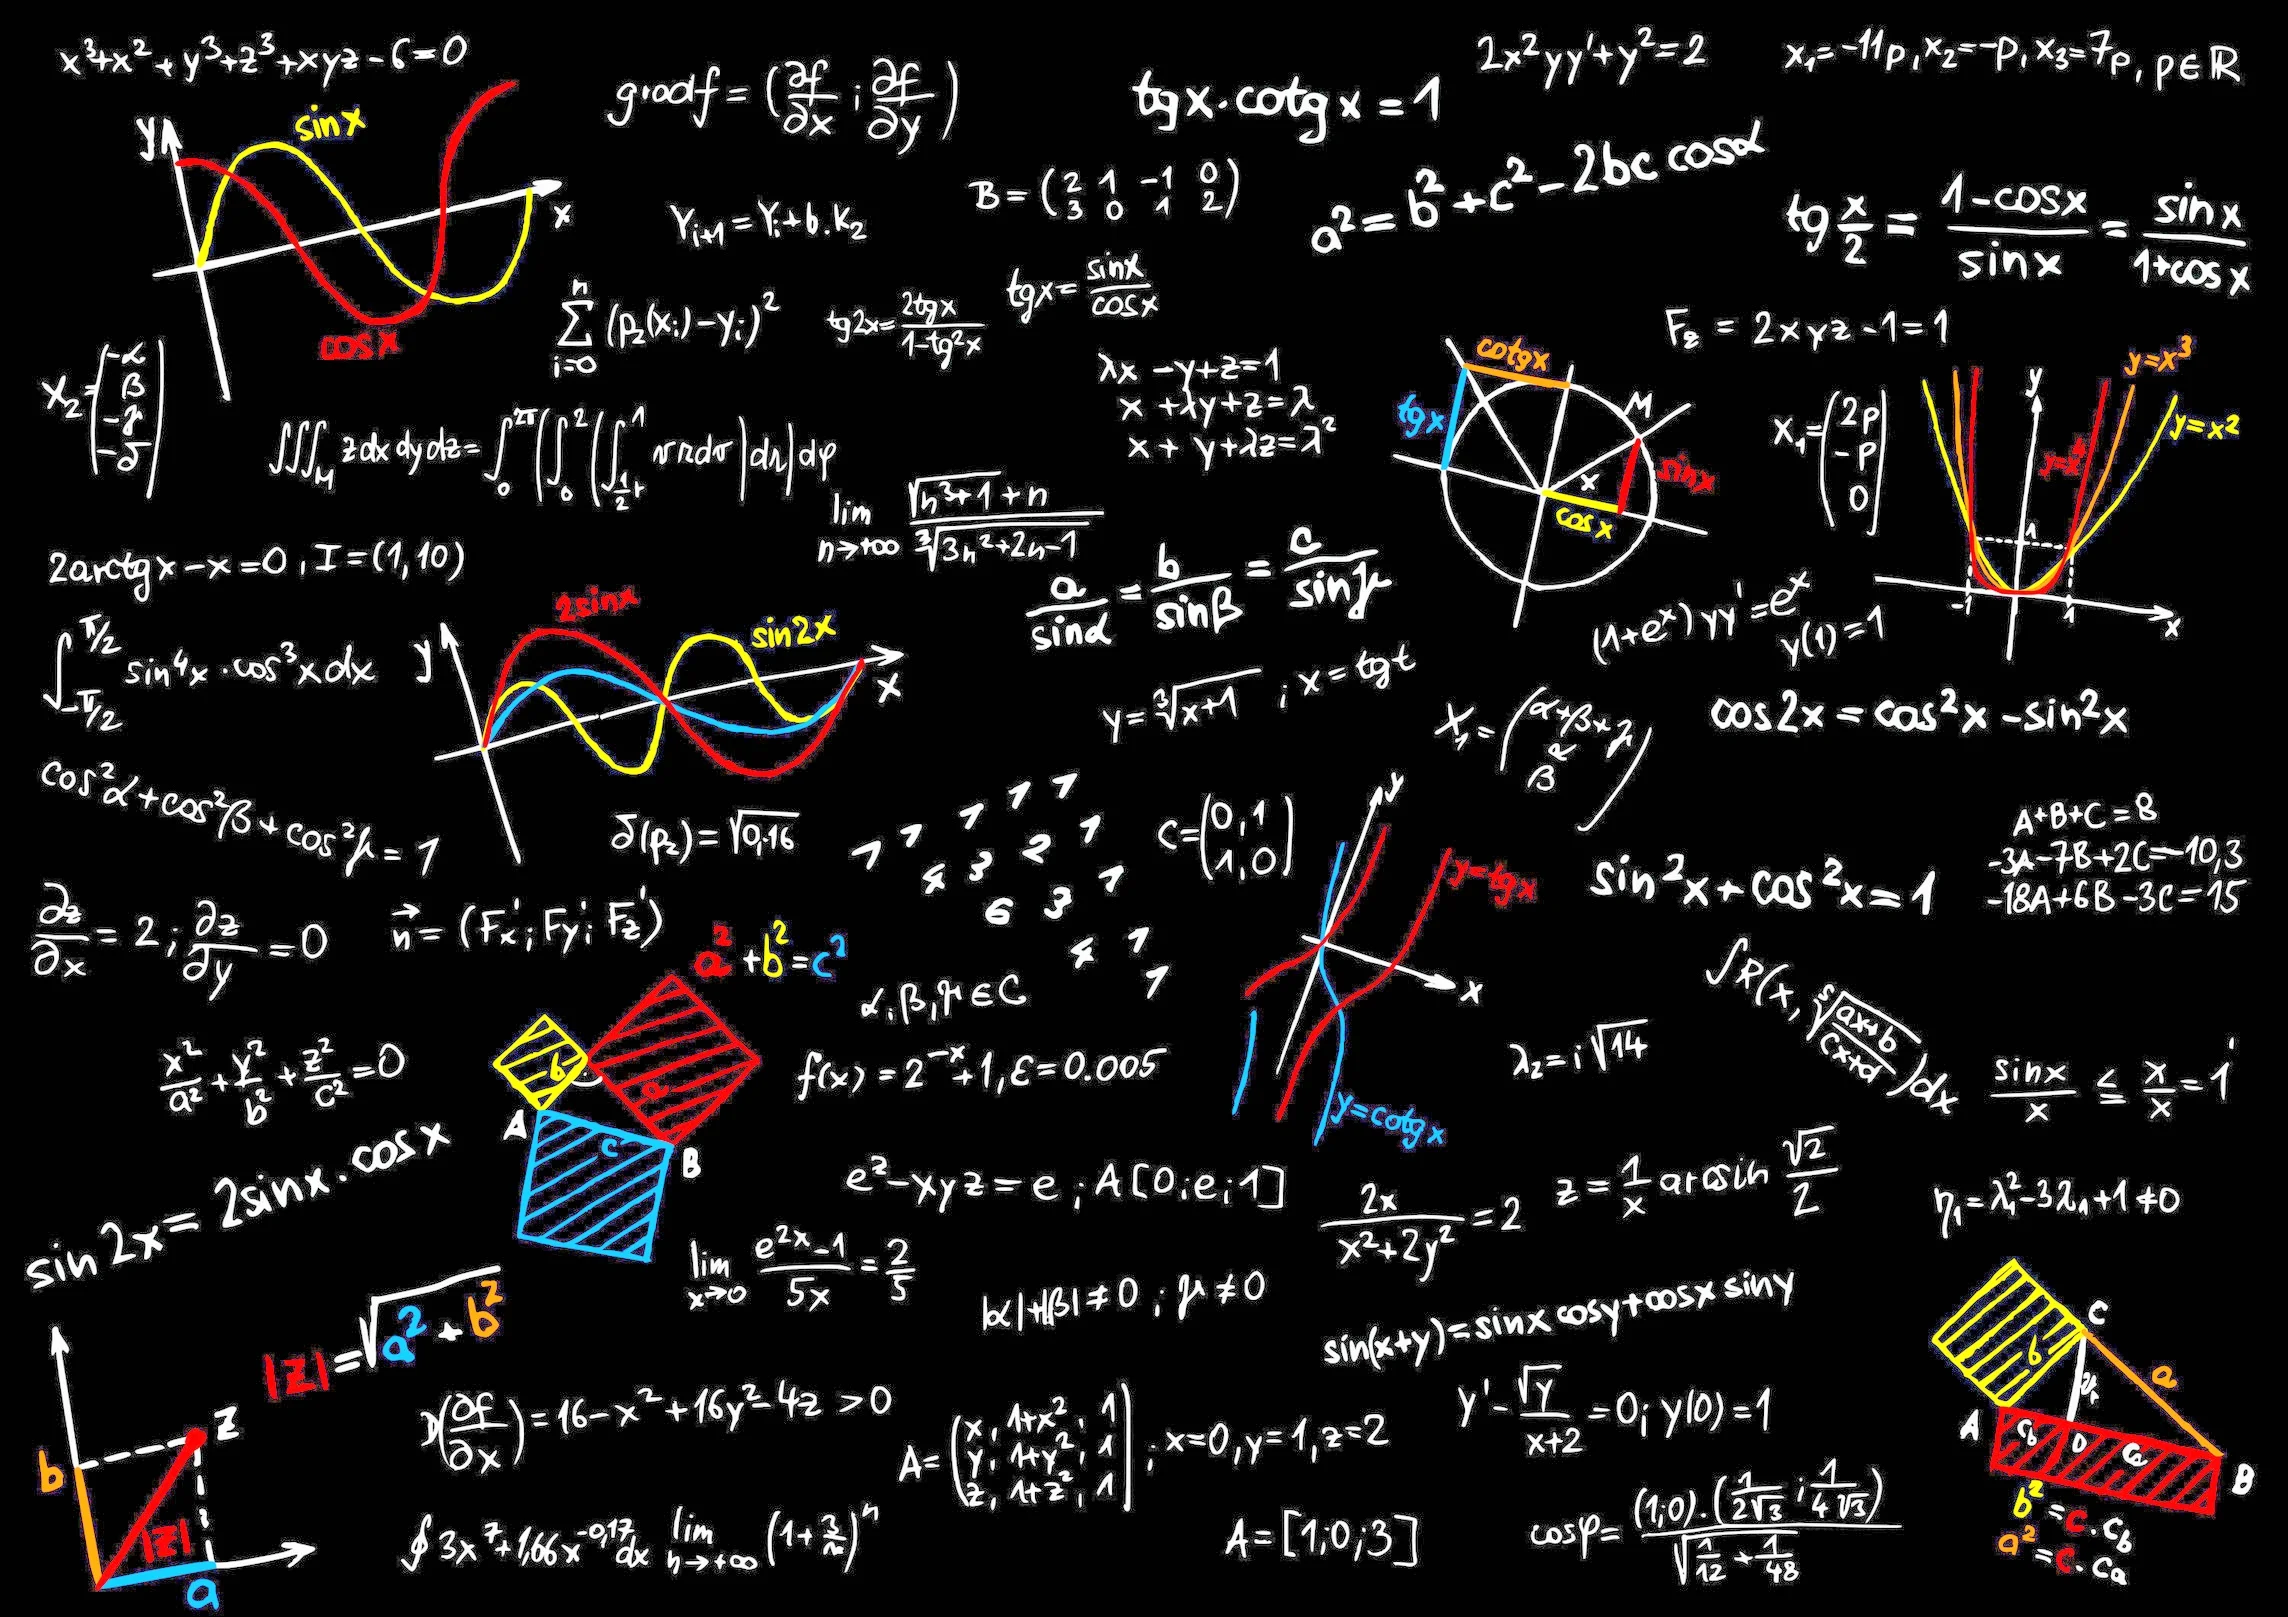 x³+x²+y³+z³+xyz-6=0
grad f = (∂f/∂x ; ∂f/∂y)
tg x · cotg x = 1
2x²yy'+y²=2
x₁=-11p, x₂=-p, x₃=7p, p∈ℝ
y
sin x
x
cos x
B = (2 1 -1 0
3 0 1 2)
a² = b²+c²-2bc cosα
tg x/2 = (1-cos x)/sin x = sin x/(1+cos x)
Yᵢ₊₁=Yᵢ+b.K₂
∑ i=0 n (p₂(xᵢ)-yᵢ)²
tg2x = 2tgx/(1-tg²x)
tgx = sinx/cosx
F₂ = 2xyz-1=1
X₂=(-α
β
-γ
-δ)
λx -y+z=1
x +λy+z=λ
x + y+λz=λ²
cotg x
tg x
M
sin x
x
cos x
X₁=(2p
-p
0)
y
y=x³
y=x²
y=x⁴
1
-1
1
x
∭M zdxdydz=
lim n→+∞ (√(n³+1)+n)/∛(3n²+2n-1)
2arctgx-x=0, I=(1,10)
a/sinα = b/sinβ = c/sinγ
(1+eˣ)yy'=eˣ
y(1)=1
∫ -π/2 π/2 sin⁴x·cos³xdx
y
2sinx
sin2x
x
y=∛(x+1) ; x=tgt
X₁=(α+β+γ
α
β)
cos2x = cos²x-sin²x
cos²α+cos²β+cos²γ=1
δ(p₂)=√0,16
1 1 1 1 1
4 3 2 1
6 3 1
4 1
1
C=(0,1
1,0)
y
y=tgx
x
y=cotgx
sin²x+cos²x=1
A+B+C=8
-3A-7B+2C=-10,3
-18A+6B-3C=15
∂z/∂x = 2 ; ∂z/∂y = 0
n⃗=(Fx'; Fy'; Fz')
a²+b²=c²
b
a
c
A
B
α,β,γ∈C
∫R(x, ⁵√((ax+b)/(cx+d)))dx
x²/a²+y²/b²+z²/c²=0
f(x)=2⁻ˣ+1, ε=0.005
λ₂=i√14
sinx/x ≤ x/x = 1
sin2x=2sinx·cosx
e²-xyz=e ; A[0;e;1]
2x/(x²+2y²)=2
z=1/x arcsin √2/2
η₁=λ₁²-3λ₁+1≠0
lim x→0 (e²ˣ-1)/5x = 2/5
|α|+|β|≠0 ; γ≠0
sin(x+y)=sinx cosy+cosx siny
|z|=√(a²+b²)
z
b
|z|
a
D(∂f/∂x)=16-x²+16y²-4z >0
A=(x, 1+x², 1
y, 1+y², 1
z, 1+z², 1) ; x=0, y=1, z=2
y'-√y/(x+2)=0; y(0)=1
C
b
a
A
c_b
D
c_a
B
b²=c.c_b
a²=c.c_a
∮3x⁷+1,66x⁻⁰'¹⁷dx
lim n→+∞ (1+3/n)ⁿ
A=[1;0;3]
cosφ=(1;0).(1/(2√3);1/(4√3))/√(1/12+1/48)